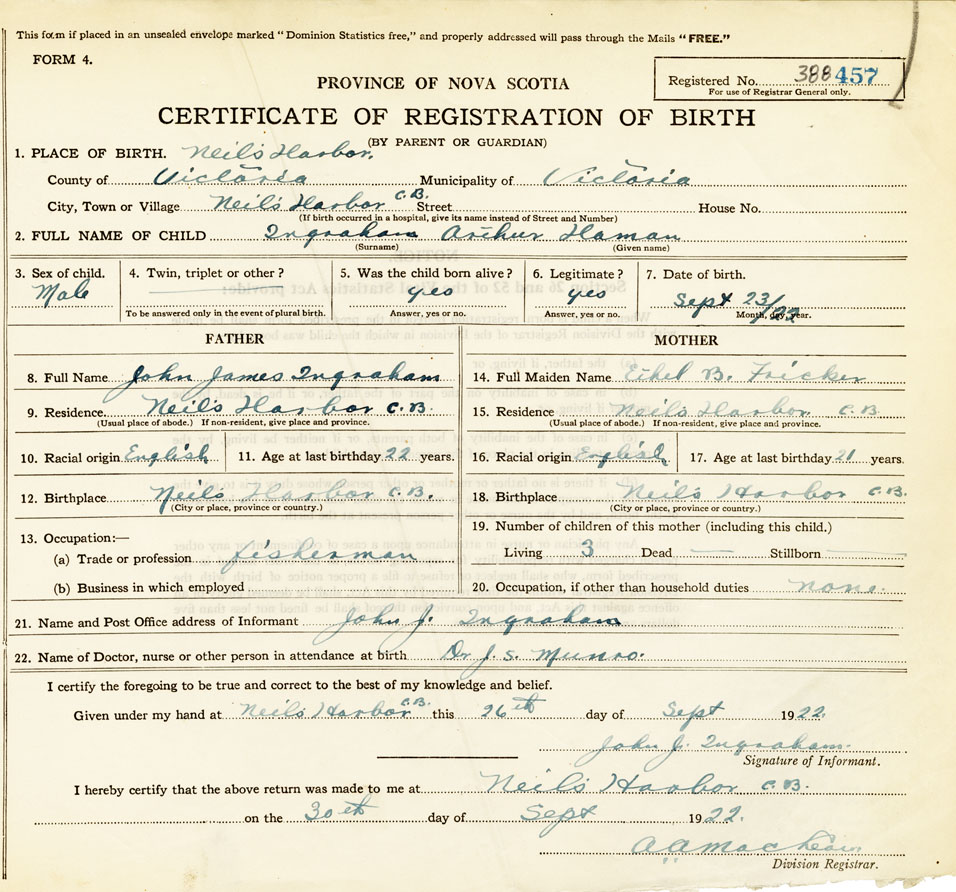 This form if placed in an unsealed envelope marked "Dominion Statistics free," and properly addressed will pass through the Mails "FREE."
FORM 4.
Registered No. 388 457
For use of Registrar General only.
PROVINCE OF NOVA SCOTIA
CERTIFICATE OF REGISTRATION OF BIRTH
(BY PARENT OR GUARDIAN)
1. PLACE OF BIRTH. Neil's Harbor.
County of Victoria Municipality of Victoria
City, Town or Village Neil's Harbor C.B. Street House No.
(If birth occurred in a hospital, give its name instead of Street and Number)
2. FULL NAME OF CHILD Ingraham Arthur Haman
(Surname) (Given name)
3. Sex of child. 4. Twin, triplet or other? 5. Was the child born alive? 6. Legitimate? 7. Date of birth.
Male yes yes Sept 23/22
To be answered only in the event of plural birth. Answer, yes or no. Answer, yes or no. Month, day, year.
FATHER MOTHER
8. Full Name John James Ingraham 14. Full Maiden Name Ethel B. Fricker
9. Residence. Neil's Harbor C.B. 15. Residence Neil's Harbor C.B.
(Usual place of abode.) If non-resident, give place and province. (Usual place of abode.) If non-resident, give place and province.
10. Racial origin English 11. Age at last birthday 22 years. 16. Racial origin English 17. Age at last birthday 21 years.
12. Birthplace Neil's Harbor C.B. 18. Birthplace Neil's Harbor C.B.
(City or place, province or country.) (City or place, province or country.)
13. Occupation:— 19. Number of children of this mother (including this child.)
(a) Trade or profession fisherman Living 3 Dead — Stillborn —
(b) Business in which employed 20. Occupation, if other than household duties none.
21. Name and Post Office address of Informant John J. Ingraham
22. Name of Doctor, nurse or other person in attendance at birth Dr J. S. Munro.
I certify the foregoing to be true and correct to the best of my knowledge and belief.
Given under my hand at Neil's Harbor C.B. this 26th day of Sept 1922.
John J. Ingraham.
Signature of Informant.
I hereby certify that the above return was made to me at Neil's Harbor C.B.
on the 30th day of Sept 1922.
Division Registrar.